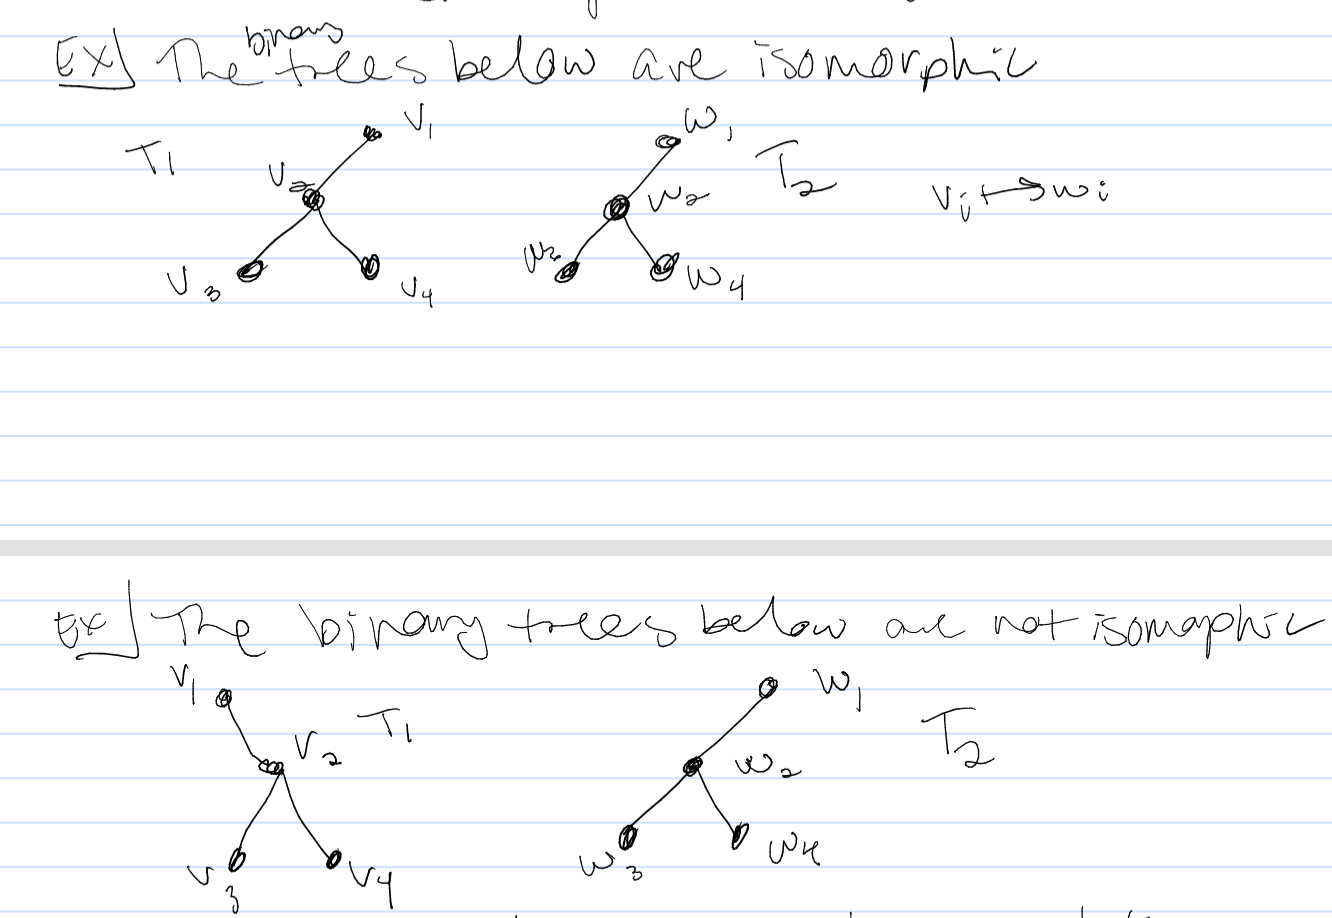 Ex] The binary trees below are isomorphic
T1 v1 v2 v3 v4
w1 w2 w3 w4 T2
vi ↦ wi
Ex] The binary trees below are not isomorphic
v1 v2 T1 v3 v4
w1 w2 w3 w4 T2